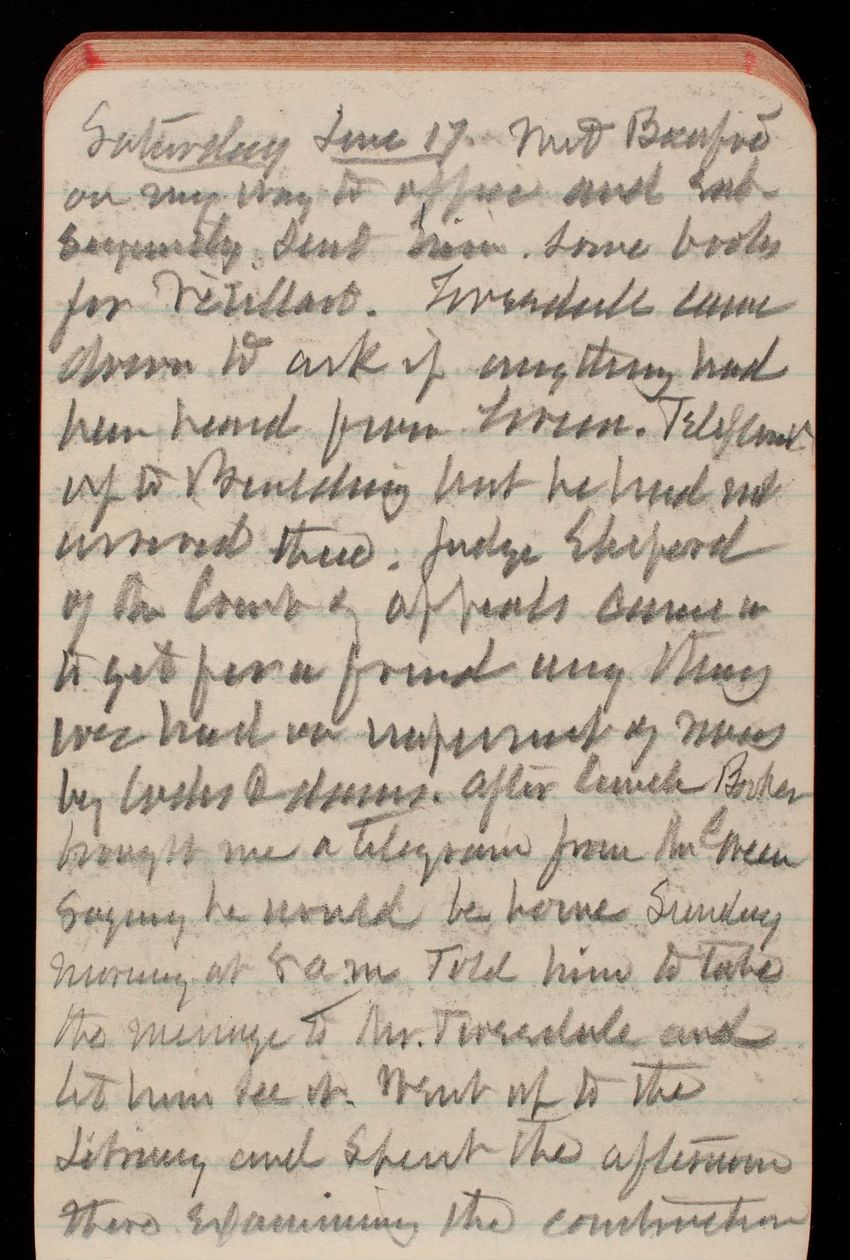 Saturday June 17. Met Beaupré
on my way to office and sub-
sequently sent him some books
for Vetillart. Tiresdale came
down to ask if anything had
been heard from Green. Telephoned
up to Building but he had not
arrived there. Judge Sheperd
of the Court of appeals came in
to get for a friend any thing
we had on refinement of
by after lunch Booker
brought me a telegram from Mr Green
Saying he would be home Sunday
morning at 8 a.m Told him to take
the message to Mr. Tiresdale and
let him see it. Went up to the
Library and spent the afternoon
there examining the construction